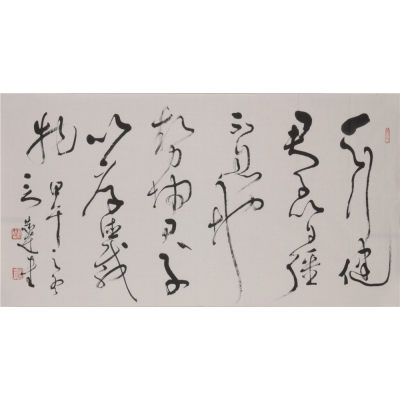 天行健
君子以自强
不息地
势坤君子
以厚德载
物
甲午之冬